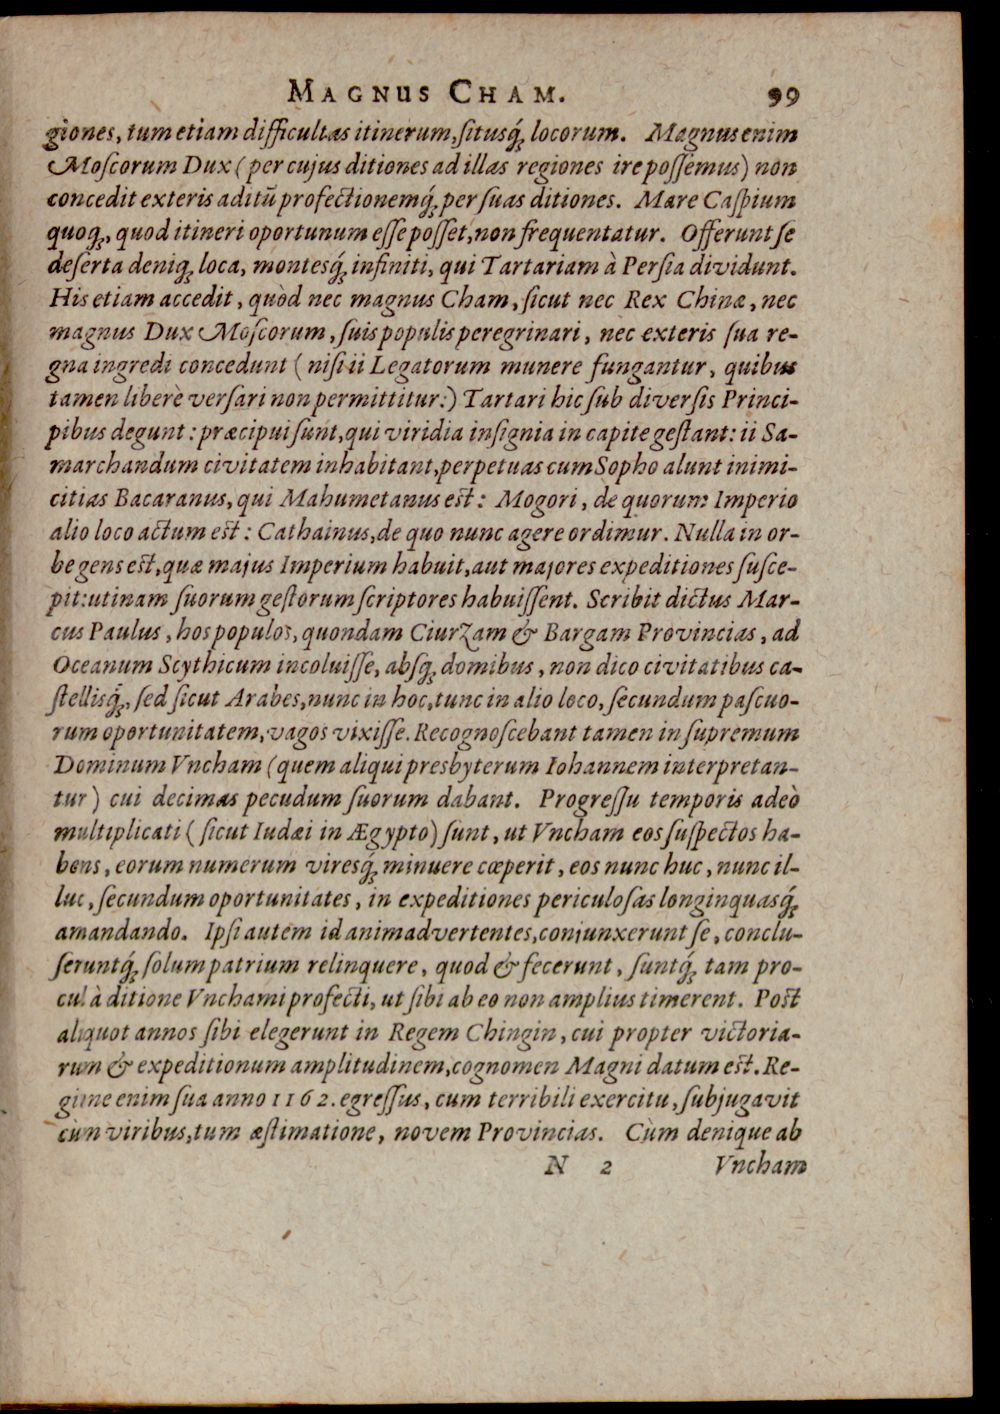 MAGNUS CHAM. 99
giones, tum etiam difficultas itinerum, ſitusq́; locorum. Magnus enim
Moſcorum Dux (per cujus ditiones ad illas regiones ire poſſemus) non
concedit exteris aditū profectionemq́; per ſuas ditiones. Mare Caſpium
quoq;, quod itineri oportunum eſſe poſſet, non frequentatur. Offerunt ſe
deſerta deniq; loca, montesq́; infiniti, qui Tartariam à Perſia dividunt.
His etiam accedit, quòd nec magnus Cham, ſicut nec Rex Chinæ, nec
magnus Dux Moſcorum, ſuis populis peregrinari, nec exteris ſua re-
gna ingredi concedunt (niſi ii Legatorum munere fungantur, quibus
tamen liberè verſari non permittitur:) Tartari hic ſub diverſis Princi-
pibus degunt: præcipui ſunt, qui viridia inſignia in capite geſtant: ii Sa-
marchandum civitatem inhabitant, perpetuas cum Sopho alunt inimi-
citias Bacaranus, qui Mahumetanus eſt: Mogori, de quorum Imperio
alio loco actum eſt: Cathainus, de quo nunc agere ordimur. Nulla in or-
be gens eſt, quæ majus Imperium habuit, aut majores expeditiones ſuſce-
pit: utinam ſuorum geſtorum ſcriptores habuiſſent. Scribit dictus Mar-
cus Paulus, hos populos, quondam Ciurzam & Bargam Provincias, ad
Oceanum Scythicum incoluiſſe, abſq; domibus, non dico civitatibus ca-
ſtellisq́;, ſed ſicut Arabes, nunc in hoc, tunc in alio loco, ſecundum paſcuo-
rum oportunitatem, vagos vixiſſe. Recognoſcebant tamen in ſupremum
Dominum Vncham (quem aliqui presbyterum Iohannem interpretan-
tur) cui decimas pecudum ſuorum dabant. Progreſſu temporis adeò
multiplicati (ſicut Iudæi in Ægypto) ſunt, ut Vncham eos ſuſpectos ha-
bens, eorum numerum viresq́; minuere cœperit, eos nunc huc, nunc il-
luc, ſecundum oportunitates, in expeditiones periculoſas longinquasq́;
amandando. Ipſi autem id animadvertentes, conjunxerunt ſe, conclu-
ſeruntq́; ſolum patrium relinquere, quod & fecerunt, ſuntq́; tam pro-
cul à ditione Vnchami profecti, ut ſibi ab eo non amplius timerent. Poſt
aliquot annos ſibi elegerunt in Regem Chingin, cui propter victoria-
rum & expeditionum amplitudinem, cognomen Magni datum eſt. Re-
gione enim ſua anno 1162. egreſſus, cum terribili exercitu, ſubjugavit
cùm viribus, tum æſtimatione, novem Provincias. Cùm denique ab
N 2 Vncham